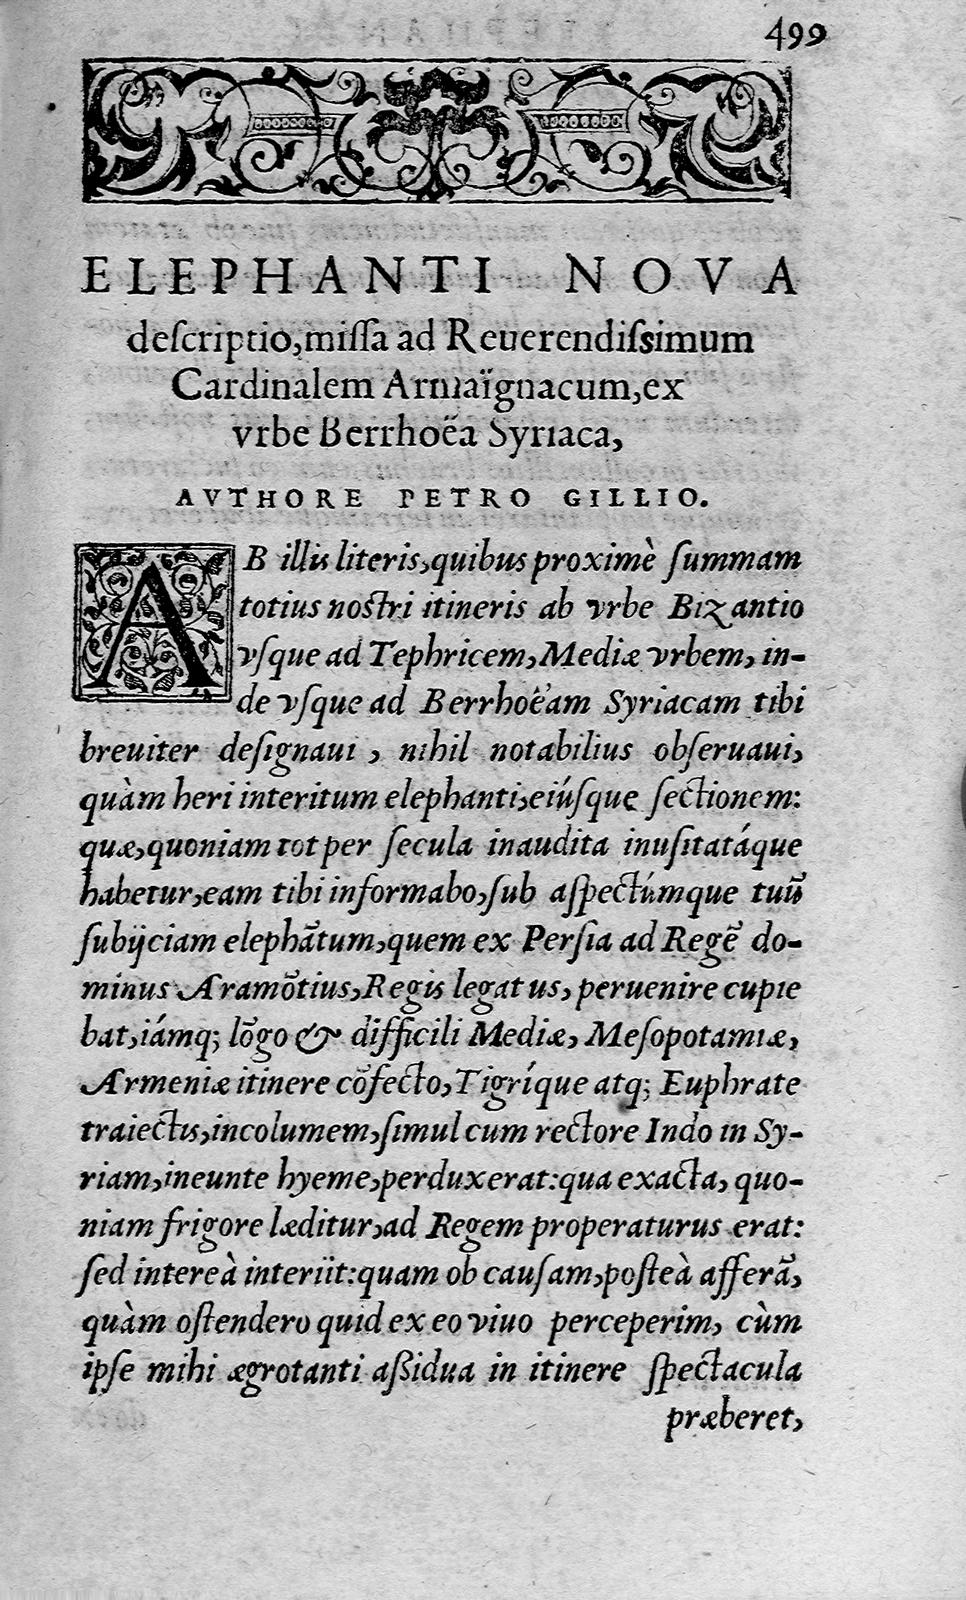 499
ELEPHANTI NOVA
deſcriptio, miſſa ad Reuerendiſsimum
Cardinalem Armaïgnacum, ex
vrbe Berrhoëa Syriaca,
AVTHORE PETRO GILLIO.
AB illis literis, quibus proximè ſummam
totius noſtri itineris ab vrbe Bizantio
vſque ad Tephricem, Mediæ vrbem, in-
de vſque ad Berrhoëam Syriacam tibi
breuiter deſignaui, nihil notabilius obſeruaui,
quàm heri interitum elephanti, eiúſque ſectionem:
quæ, quoniam tot per ſecula inaudita inuſitatáque
habetur, eam tibi informabo, ſub aſpectúmque tuũ
ſubijciam elephãtum, quem ex Perſia ad Regẽ do-
minus Aramõtius, Regis legatus, peruenire cupie
bat, iámq; lõgo & difficili Mediæ, Meſopotamiæ,
Armeniæ itinere cõfecto, Tigríque atq; Euphrate
traiectis, incolumem, ſimul cum rectore Indo in Sy-
riam, ineunte hyeme, perduxerat: qua exacta, quo-
niam frigore læditur, ad Regem properaturus erat:
ſed intereà interiit: quam ob cauſam, poſteà afferã,
quàm oſtendero quid ex eo viuo perceperim, cùm
ipſe mihi ægrotanti aßidua in itinere ſpectacula
præberet,